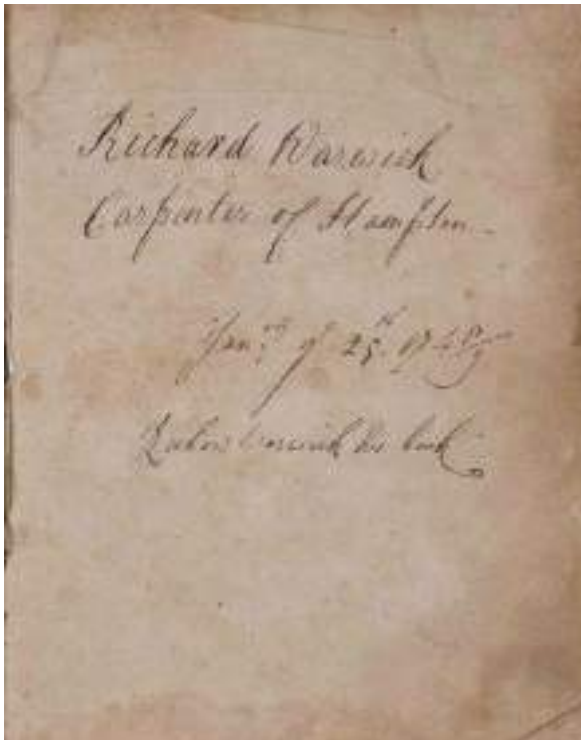 Richard Warwick
Carpenter of Hampton
Jan.ry ye 25th
Warwick his book